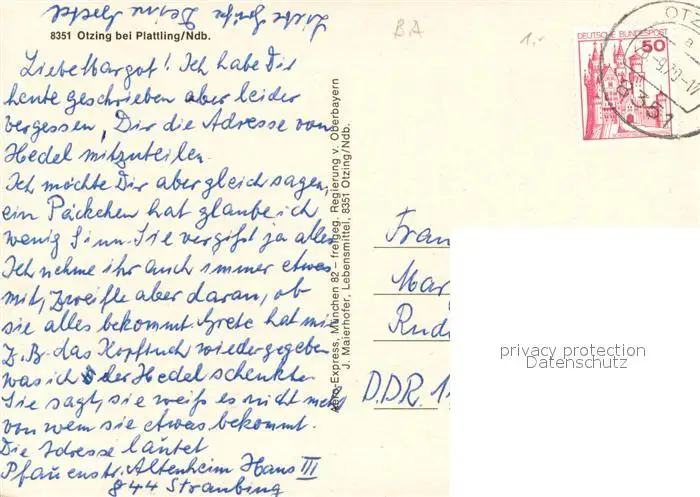 Liebe Grüße Deine Gretel
8351 Otzing bei Plattling/Ndb.
Liebe Margot! Ich habe Dir
heute geschrieben aber leider
vergessen, Dir die Adresse von
Hedel mitzuteilen.
Ich möchte Dir aber gleich sagen,
ein Päckchen hat glaube ich
wenig Sinn. Sie vergißt ja alles
Ich nehme ihr auch immer etwas
mit, zweifle aber daran, ob
sie alles bekommt. Grete hat mir
z.B. das Kopftuch wiedergegeben
was ich der Hedel schenkte.
Sie sagt, sie weiß es nicht mehr
von wem sie etwas bekommt.
Die Adresse lautet
Pfauenstr. Altenheim Haus III
844 Straubing
Aero-Express, München 82 – freigeg. Regierung v. Oberbayern
J. Maierhofer, Lebensmittel, 8351 Otzing/Ndb.
BA
1,-
DEUTSCHE BUNDESPOST
50
OTZ
8351
Frau
Mar
Rud
DDR 1
privacy protection
Datenschutz